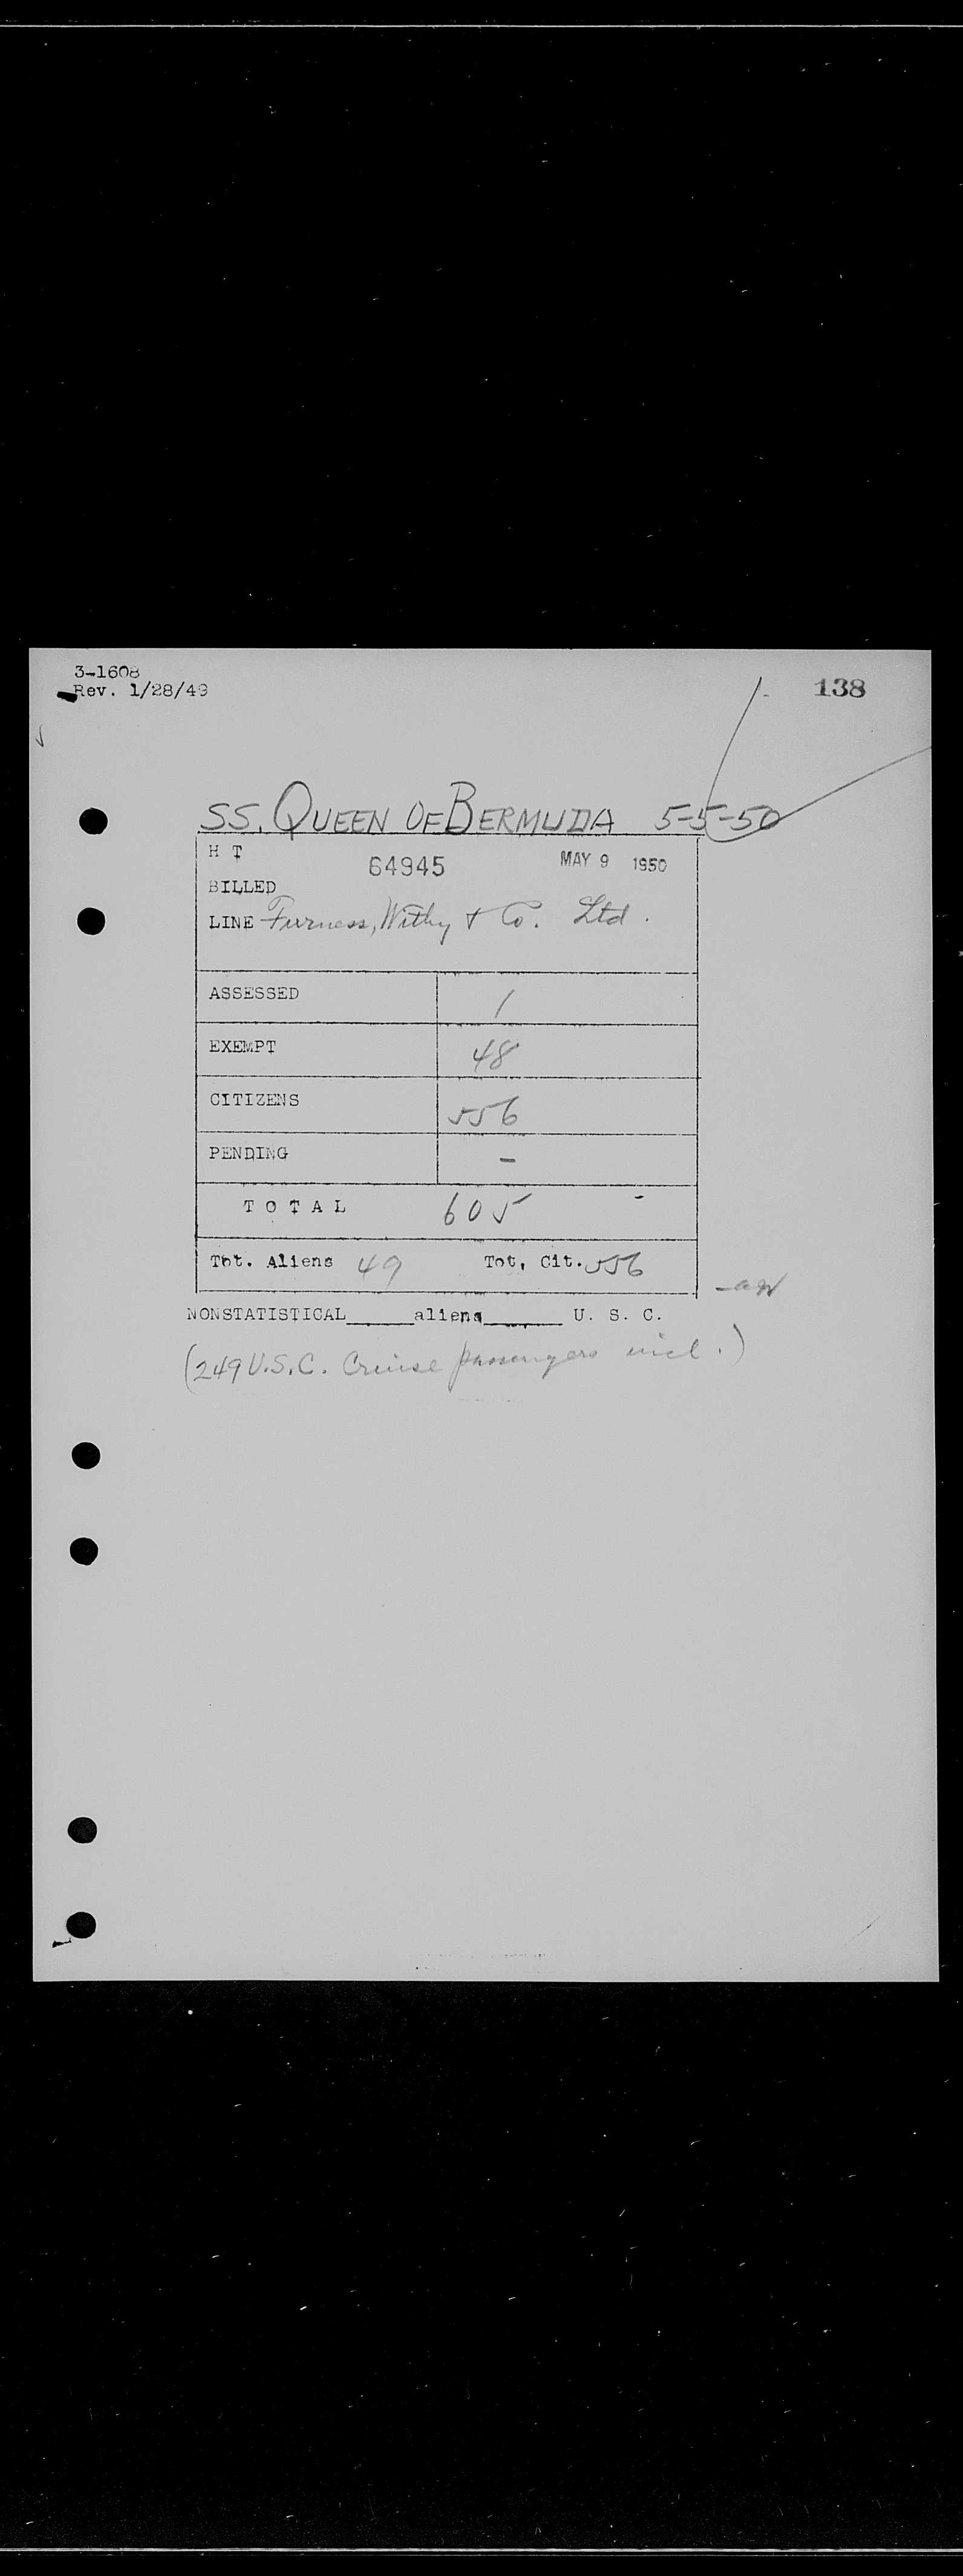 3-1608
Rev. 1/28/49
138
SS. QUEEN OF BERMUDA 5-5-50
H T
64945 MAY 9 1950
BILLED
LINE Furness, Withy & Co. Ltd.
ASSESSED 1
EXEMPT 48
CITIZENS 556
PENDING -
T O T A L 605
Tot. Aliens 49 Tot. Cit. 556
NONSTATISTICAL_____aliens______ U. S. C.
(249 U.S.C. Cruise passengers incl.)